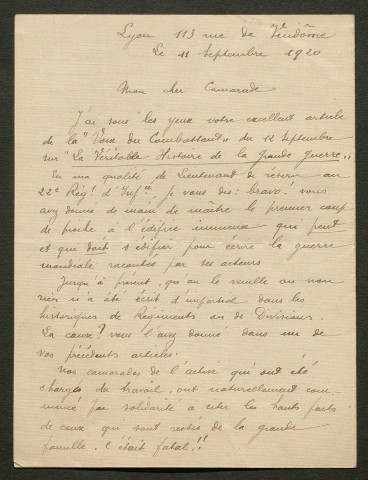 Lyon 113 rue de Vendôme
Le 11 Septembre 1920
Mon cher Camarade
J'ai sous les yeux votre excellent article
de la "Voix du Combattant" du 12 Septembre
sur "La Véritable Histoire de la Grande Guerre",
En ma qualité de Lieutenant de réserve au
22e Régt d'Inf.ie je vous dis: bravo! vous
avez donné de main de maître le premier coup
de pioche à l'édifice immense qui peut
et qui doit s'édifier pour écrire la guerre
mondiale racontée par ses acteurs
Jusqu'à présent, qu'on le veuille ou non
rien n'a été écrit d'impartial dans les
historiques de Régiments ou de Divisions.
La cause? vous l'avez donnée dans un de
vos précédents articles.
Nos camarades de l'active qui ont été
chargés du travail, ont naturellement com-
mencé par solidarité à citer les hauts faits
de ceux qui sont restés de la grande
famille. C'était fatal!!